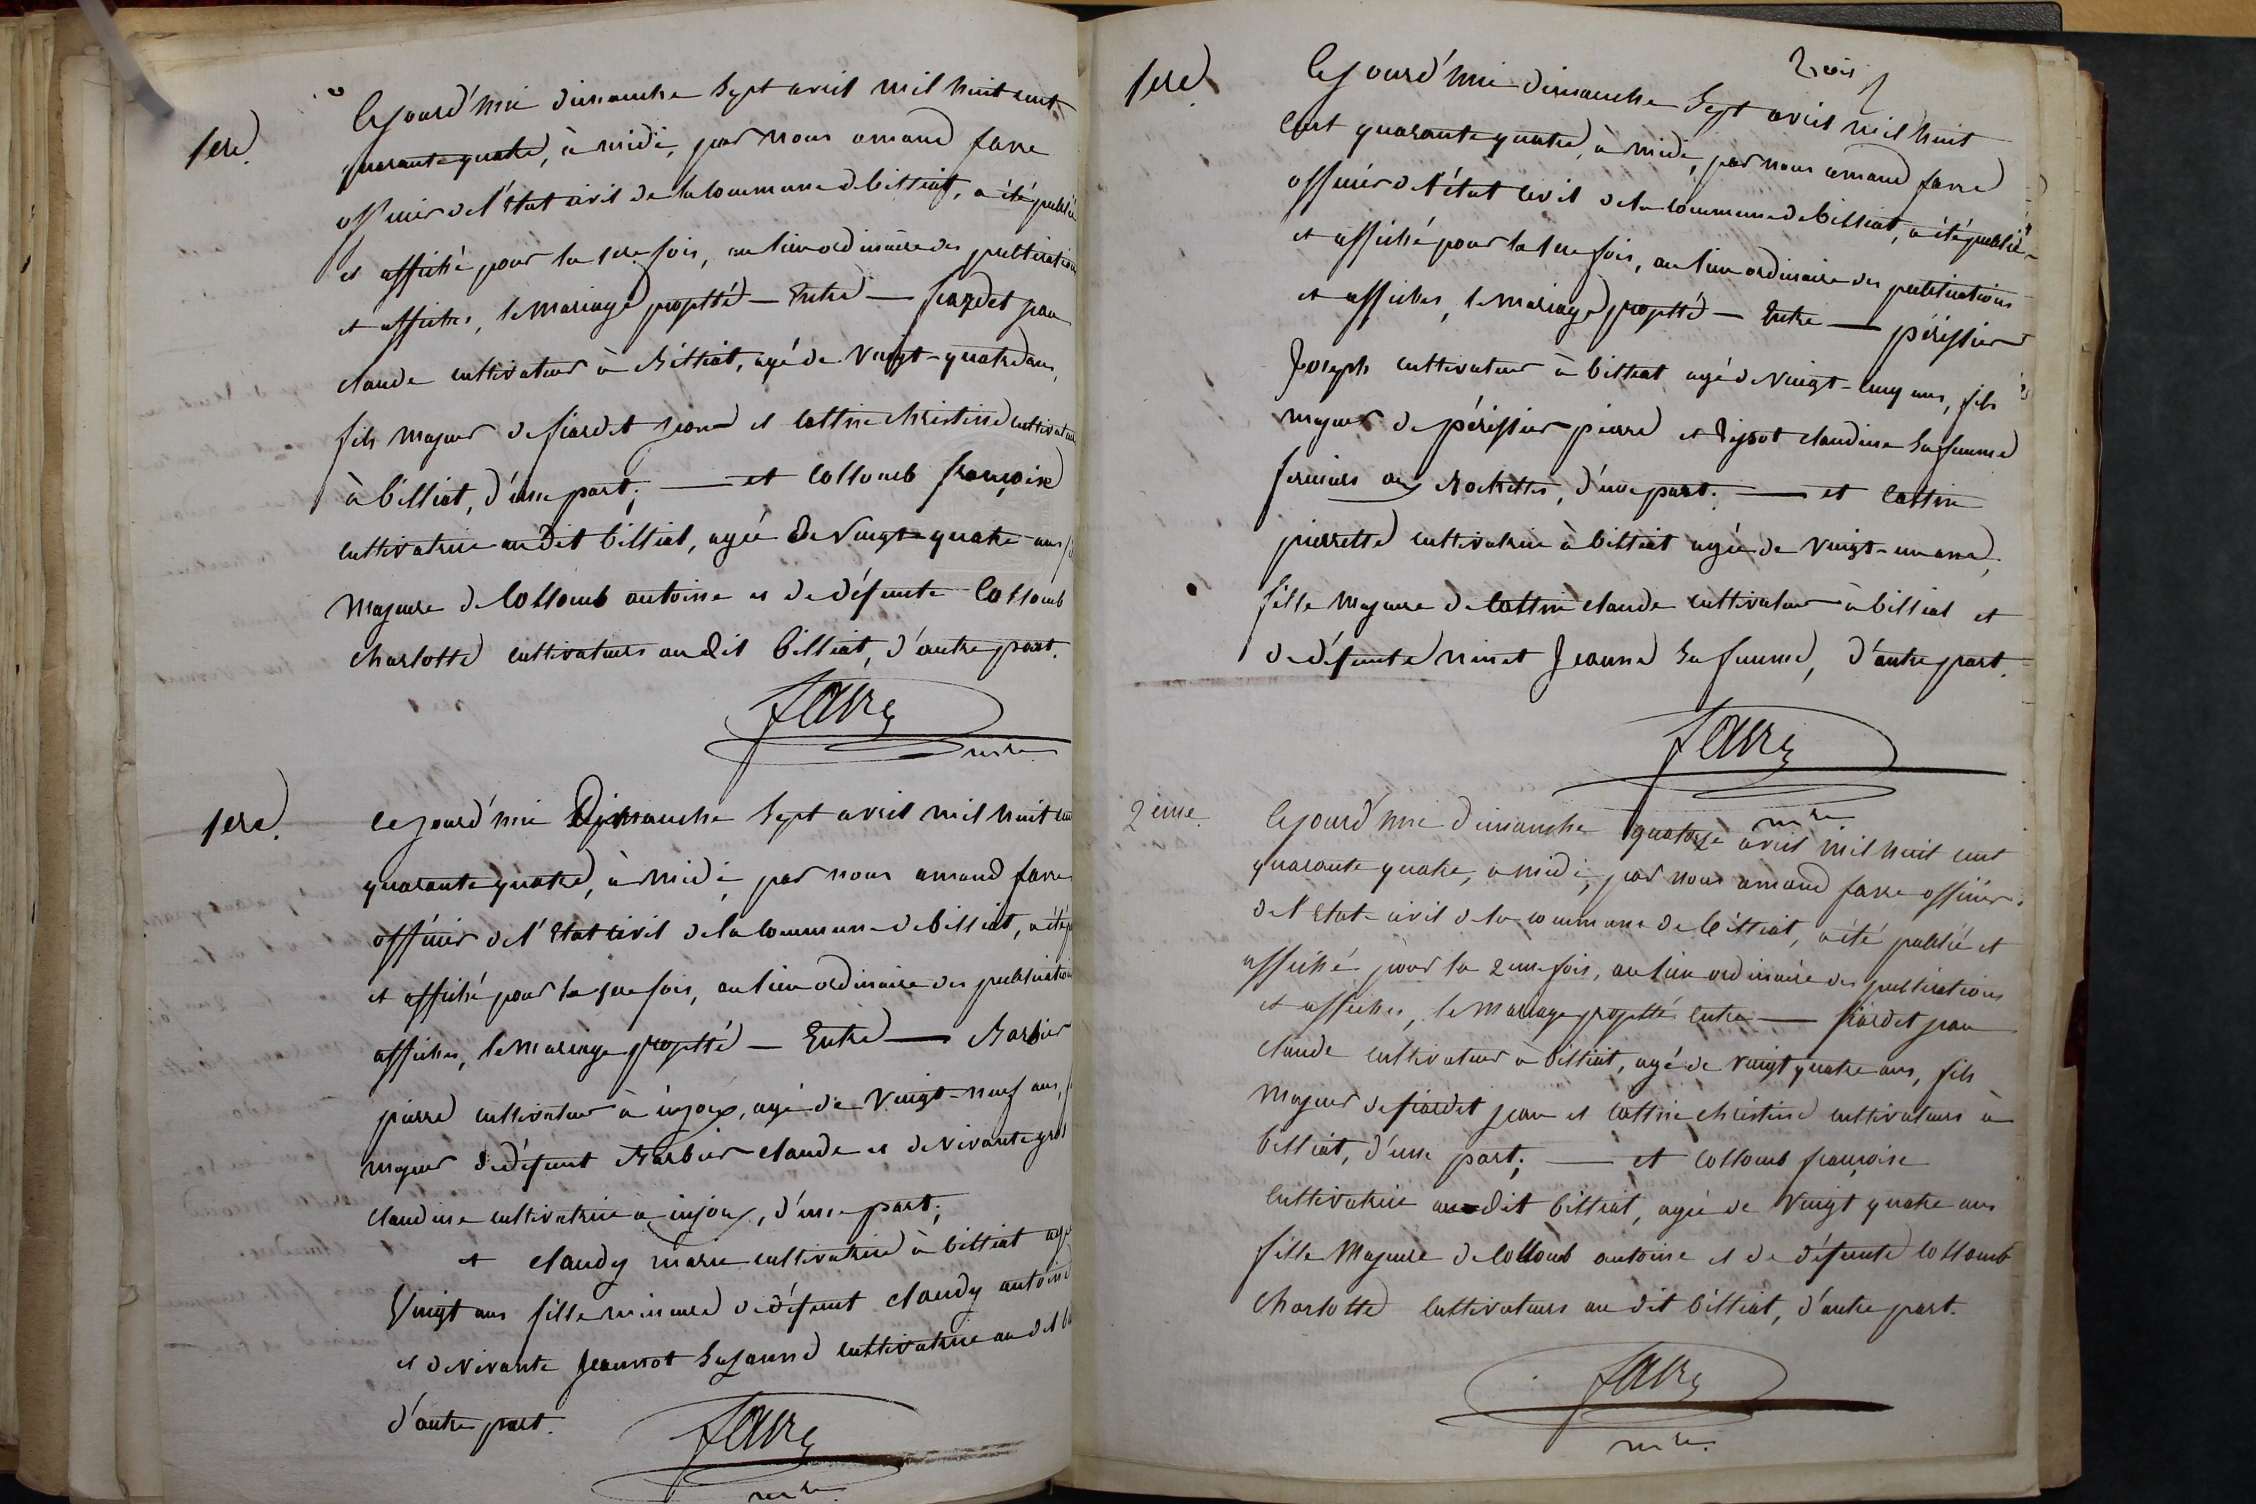 1ere.
Cejourd'hui dimanche sept avril mil huit cent
quarante quatre, à midi, par nous amand favre
officier de l'état civil de la commune de billiat, a été publié
et affiché pour la 1ere fois, au lieu ordinaire des publications
et affiches, le mariage projetté — Entre — fiardet jean
claude cultivateur à Billiat, agé de vingt-quatre ans,
fils majeur de fiardet jean et cottin christine cultivateurs
à billiat, d'une part; — et collomb françoise
cultivatrice au dit billiat, agée de vingt quatre ans
majeure de collomb antoine et de défunte Collomb
charlotte cultivateurs au dit billiat, d'autre part.
favre
1ere.
Cejourd'hui Dimanche sept avril mil huit cent
quarante quatre, à midi, par nous amand favre
officier de l'état civil de la commune de billiat, a été
et affiché pour la 1ere fois, au lieu ordinaire des publications
affiches, le mariage projetté — Entre — Barbier
pierre cultivateur à injoux, agé de vingt-neuf ans,
majeur de défunt Barbier claude et de vivante gros
claudine cultivatrice à injoux, d'une part;
et claudy marie cultivatrice à billiat agée
vingt ans fille mineure de défunt claudy antoine
et de vivante jeannot suzanne cultivatrice au dit
d'autre part.
favre
mre.
trois
1ere.
Cejourd'hui dimanche sept avril mil huit
cent quarante quatre, à midi, par nous amand favre
officier de l'état civil de la commune de billiat, a été publié
et affiché pour la 1ere fois, au lieu ordinaire des publications
et affiches, le mariage projetté — Entre — périssier
Joseph cultivateur à billiat agé de vingt-cinq ans, fils
majeur de périssier pierre et claudine sa femme
fermiers aux Rochettes, d'une part; — et cottin
pierrette cultivatrice à billiat agée de vingt-un ans,
fille majeure de cottin claude cultivateur à billiat et
de défunte ninet Jeanne sa femme, d'autre part.
favre
mre.
2ème.
Cejourd'hui dimanche quatorze avril mil huit cent
quarante quatre, à midi, par nous amand favre officier
de l'état civil de la commune de billiat, a été publié et
affiché pour la 2eme fois, au lieu ordinaire des publications
et affiches, le mariage projetté entre — fiardet jean
claude cultivateur à billiat, agé de vingt quatre ans, fils
majeur de fiardet jean et cottin christine cultivateurs à
billiat, d'une part; — et collomb françoise
cultivatrice au dit billiat, agée de vingt quatre ans
fille majeure de collomb antoine et de défunte collomb
charlotte cultivateurs au dit billiat, d'autre part.
favre
mre.